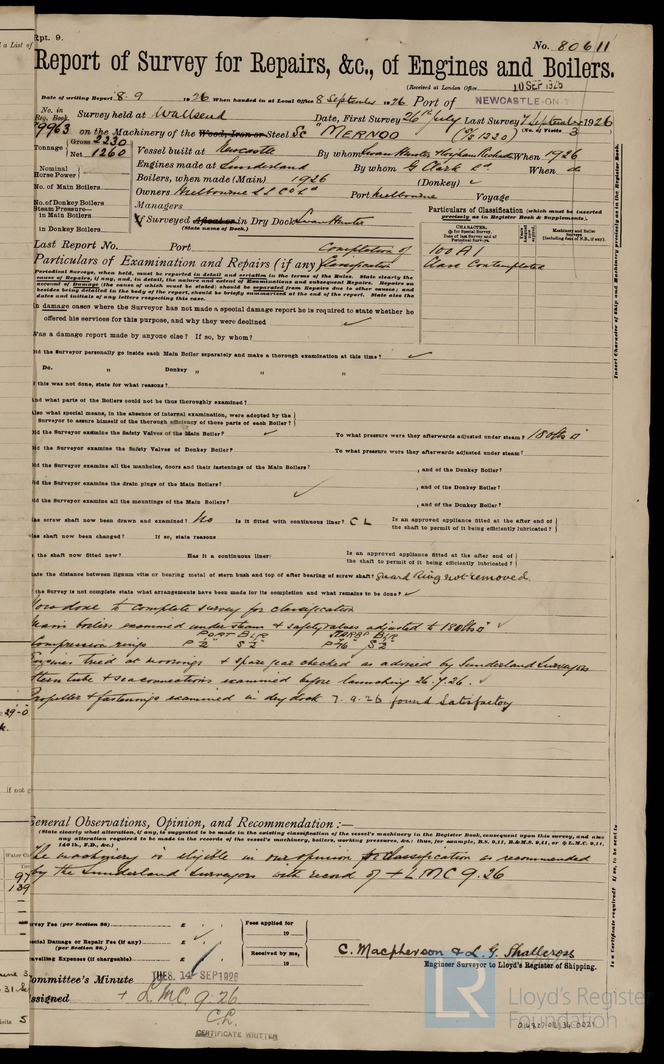 Rpt. 9.
No. 80611
Report of Survey for Repairs, &c., of Engines and Boilers.
(Received at London Office 10 SEP 1926
Date of writing Report 8. 9 1926 When handed in at Local Office 8 September 1926 Port of NEWCASTLE-ON-T
No. in Reg. Book. Survey held at Wallsend Date, First Survey 26th July Last Survey 7 September 1926
79963 on the Machinery of the Wood, Iron or Steel Sc "MERNOO" (No. of Visits 3
Tonnage Gross 2230
Net 1260
Vessel built at Newcastle By whom Swan Hunter & Wigham Richardson When 1926
Engines made at Sunderland By whom G Clark Ld. When do
Nominal Horse Power
Boilers, when made (Main) 1926 (Donkey)
No. of Main Boilers
Owners Melbourne S S Co Ld Port Melbourne Voyage
No. of Donkey Boilers
Steam Pressure—
in Main Boilers
in Donkey Boilers
Managers
If Surveyed Afloat or in Dry Dock Swan Hunter
(State name of Dock.)
Particulars of Classification (which must be inserted precisely as in Register Book & Supplements).
Last Report No. Port Completion of
Particulars of Examination and Repairs (if any) Classification
100 A1
Class Contemplated
Periodical Surveys, when held, must be reported in detail and seriatim in the terms of the Rules. State clearly the
cause of Repairs, if any, and, in detail, the nature and extent of Examinations and subsequent Repairs. Repairs on
account of Damage (the cause of which must be stated) should be separated from Repairs due to other causes; and
besides being detailed in the body of the report, should be briefly summarized at the end of the report. State also the
dates and initials of any letters respecting this case.
In damage cases where the Surveyor has not made a special damage report he is required to state whether he
offered his services for this purpose, and why they were declined
Was a damage report made by anyone else? If so, by whom?
Did the Surveyor personally go inside each Main Boiler separately and make a thorough examination at this time?
Do. " Donkey " " "
If this was not done, state for what reasons?
And what parts of the Boilers could not be thus thoroughly examined?
Also what special means, in the absence of internal examination, were adopted by the
Surveyor to assure himself of the thorough efficiency of those parts of each Boiler?
Did the Surveyor examine the Safety Valves of the Main Boiler? To what pressure were they afterwards adjusted under steam? 180lbs □"
Did the Surveyor examine the Safety Valves of Donkey Boiler? To what pressure were they afterwards adjusted under steam?
Did the Surveyor examine all the manholes, doors and their fastenings of the Main Boilers? , and of the Donkey Boiler?
Did the Surveyor examine the drain plugs of the Main Boilers? , and of the Donkey Boiler?
Did the Surveyor examine all the mountings of the Main Boilers? , and of the Donkey Boiler?
Has screw shaft now been drawn and examined? No Is it fitted with continuous liner? C L Is an approved appliance fitted at the after end of
the shaft to permit of it being efficiently lubricated?
Has shaft now been changed? If so, state reasons
Is the shaft now fitted new? Has it a continuous liner? Is an approved appliance fitted at the after end of
the shaft to permit of it being efficiently lubricated?
State the distance between lignum vitæ or bearing metal of stern bush and top of after bearing of screw shaft? Guard Ring not removed.
If the Survey is not complete state what arrangements have been made for its completion and what remains to be done?
Now done to complete survey for classification
Main boilers examined under steam & safety valves adjusted to 180lbs □"
PORT BLR STARBD BLR
Compression rings
Engines tried at moorings & spare gear checked as advised by Sunderland Surveyors
Stern tube & sea connections examined before launching 26.7.26.
Propeller & fastenings examined in dry dock 7.9.26 found satisfactory
General Observations, Opinion, and Recommendation:—
(State clearly what alteration, if any, is suggested to be made in the existing classification of the vessel's machinery in the Register Book, consequent upon this survey, and also
any alteration required to be made in the records of the vessel's machinery, boilers, working pressures, &c.; thus, for example, B.S. 9,11, B.&M.S. 9,11, or L.M.C. 9,11,
140 lb., F.D., &c.)
The machinery is eligible in our opinion for classification as recommended
by the Sunderland Surveyors with record of + L M C 9.26
Survey Fee (per Section 28) £
Special Damage or Repair Fee (if any) £
(per Section 28.)
Travelling Expenses (if chargeable) £
Fees applied for
19
Received by me,
19
C. Macpherson & L. G. Shallcross
Engineer Surveyor to Lloyd's Register of Shipping.
Committee's Minute TUES. 14 SEP 1926
Assigned + L.M.C. 9.26
C.L.
CERTIFICATE WRITTEN
Insert Character of Ship and Machinery precisely as in the Register Book.
Is a Certificate required? If so, to be sent to
LR Lloyd's Register
Foundation